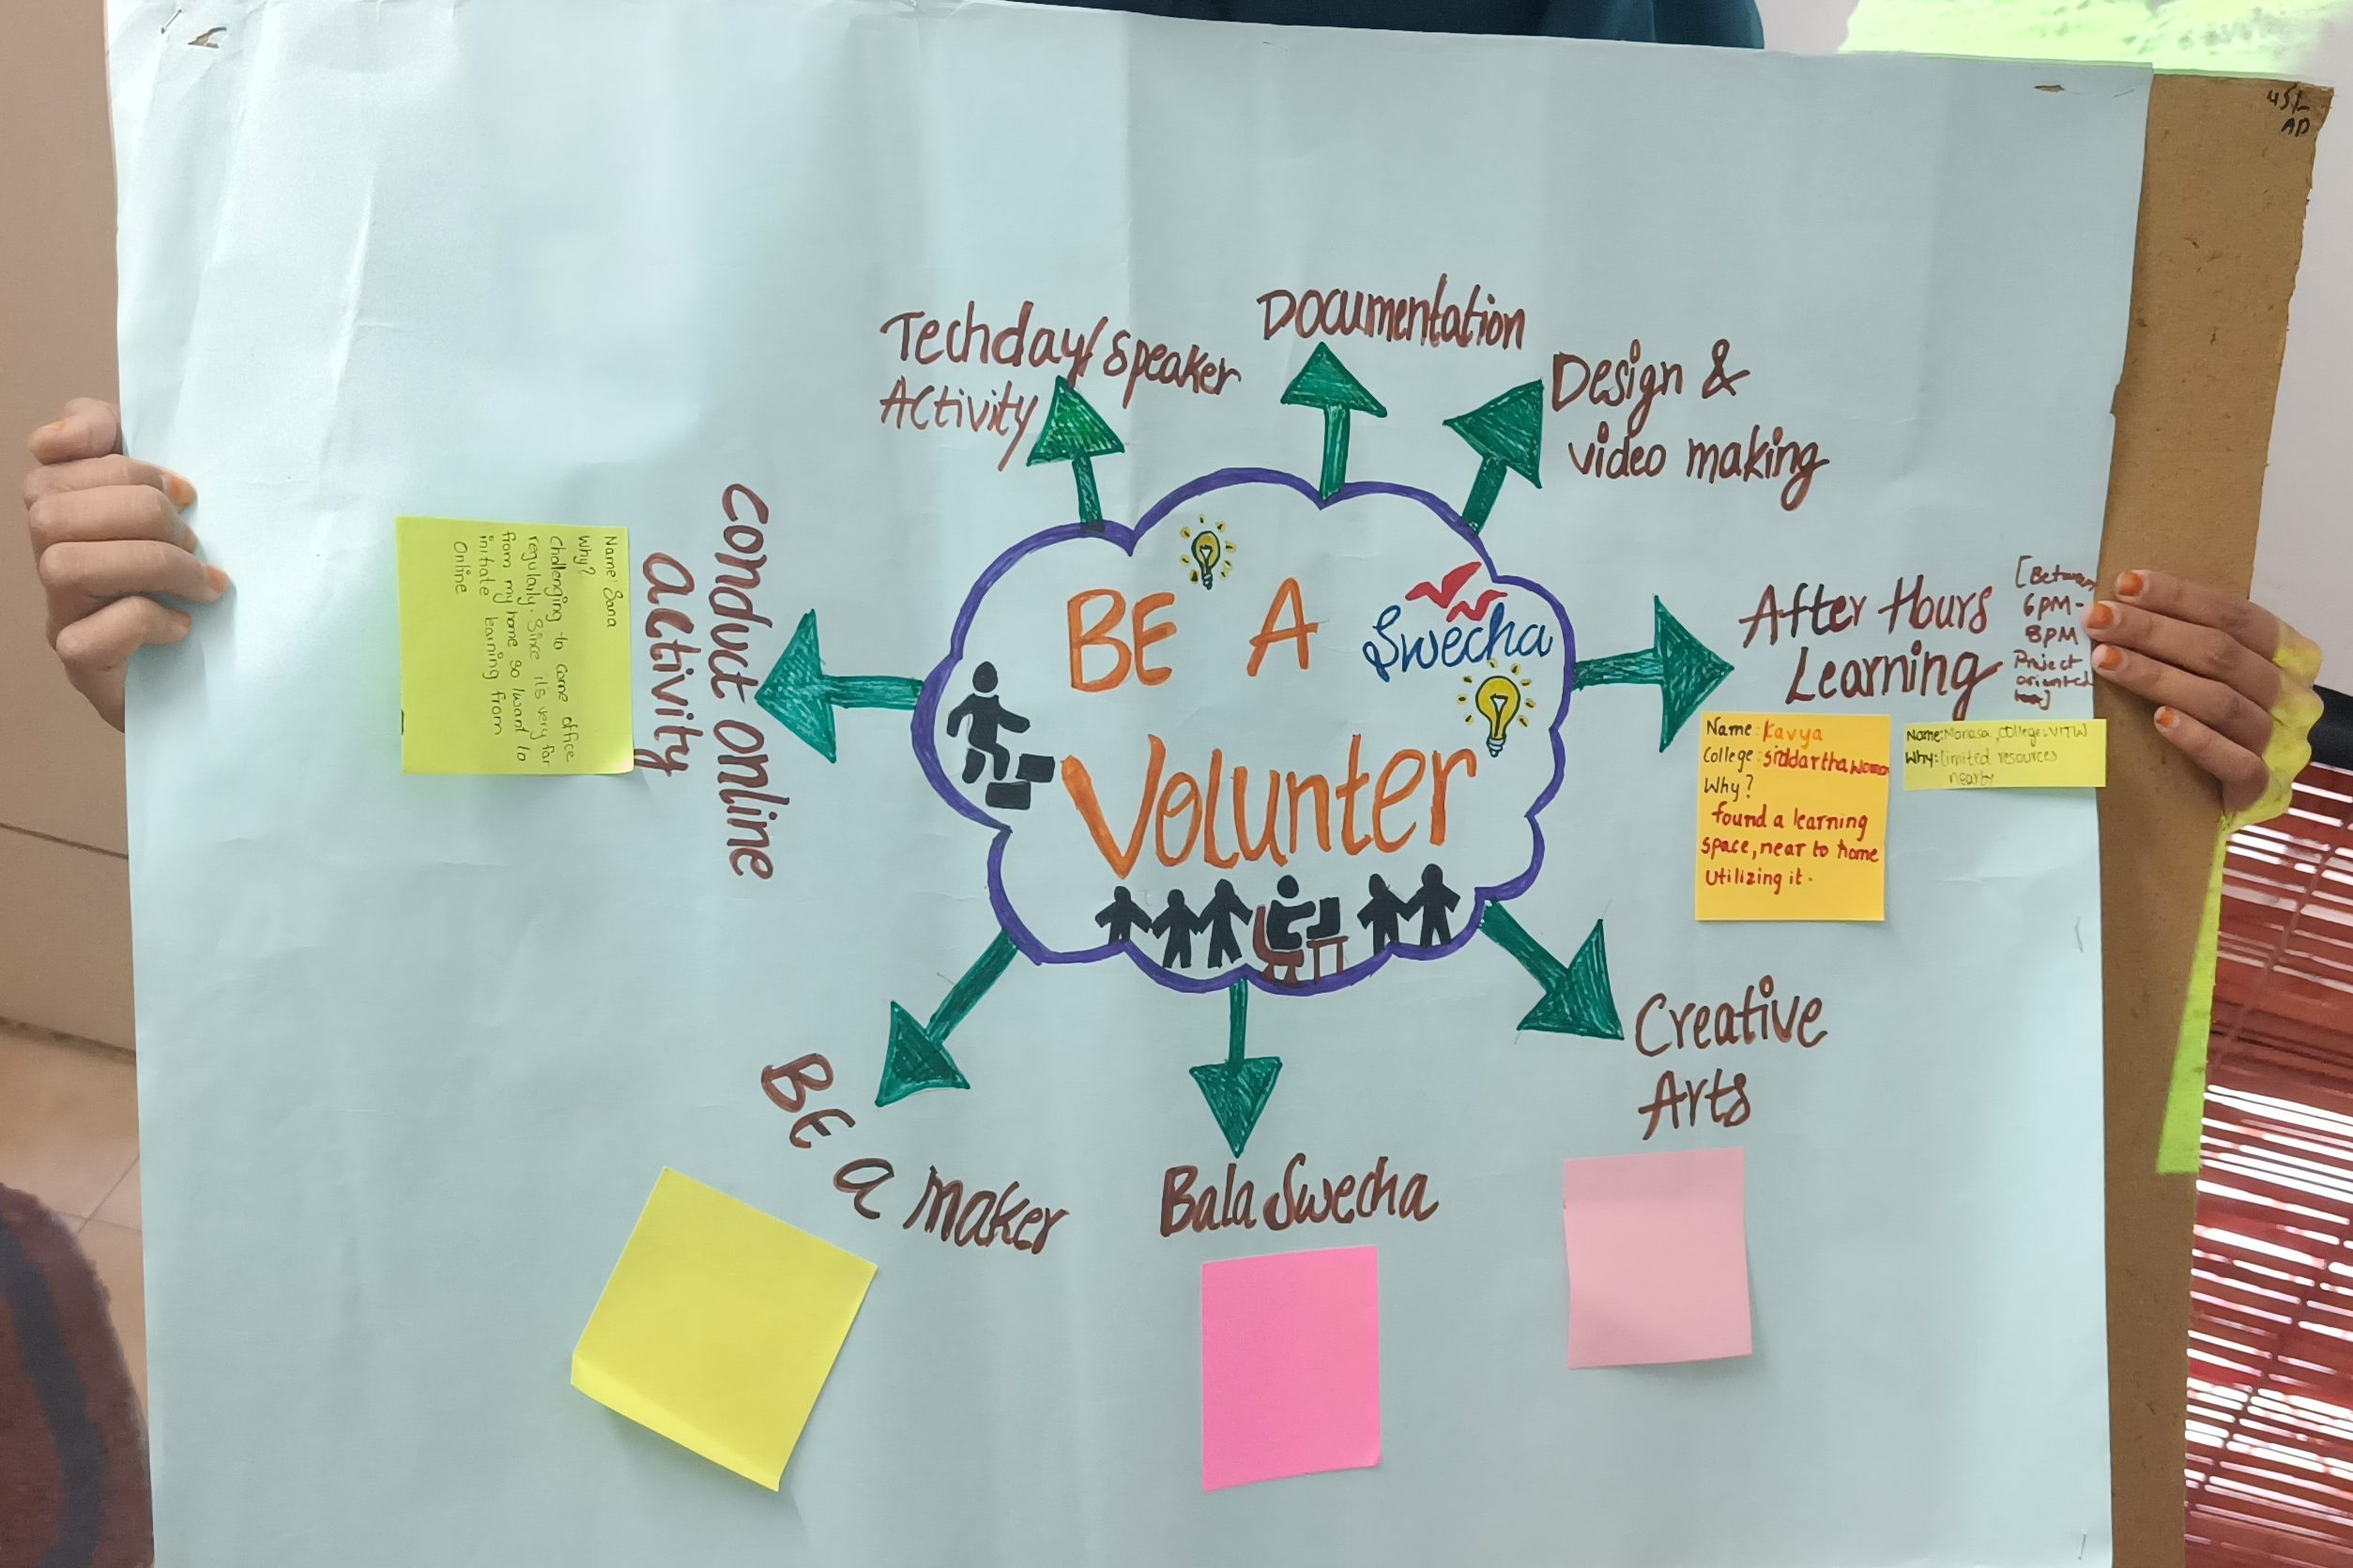 45/-
AD
Techday/Speaker
Activity
Documentation
Design &
video making
After Hours
Learning
[Between
6PM-
8PM
Project
oriented
Name: Kavya
College: Siddartha Women
Why?
found a learning
space, near to home
utilizing it.
Name: Manasa, College: VITW
Why: limited resources
nearby
Creative
Arts
Bala Swecha
BE a maker
Conduct online
activity
Name: Sana
Why?
Challenging to come office
regularly. Since its very far
from my home so I want to
initiate learning from
Online
BE A
Swecha
Volunter